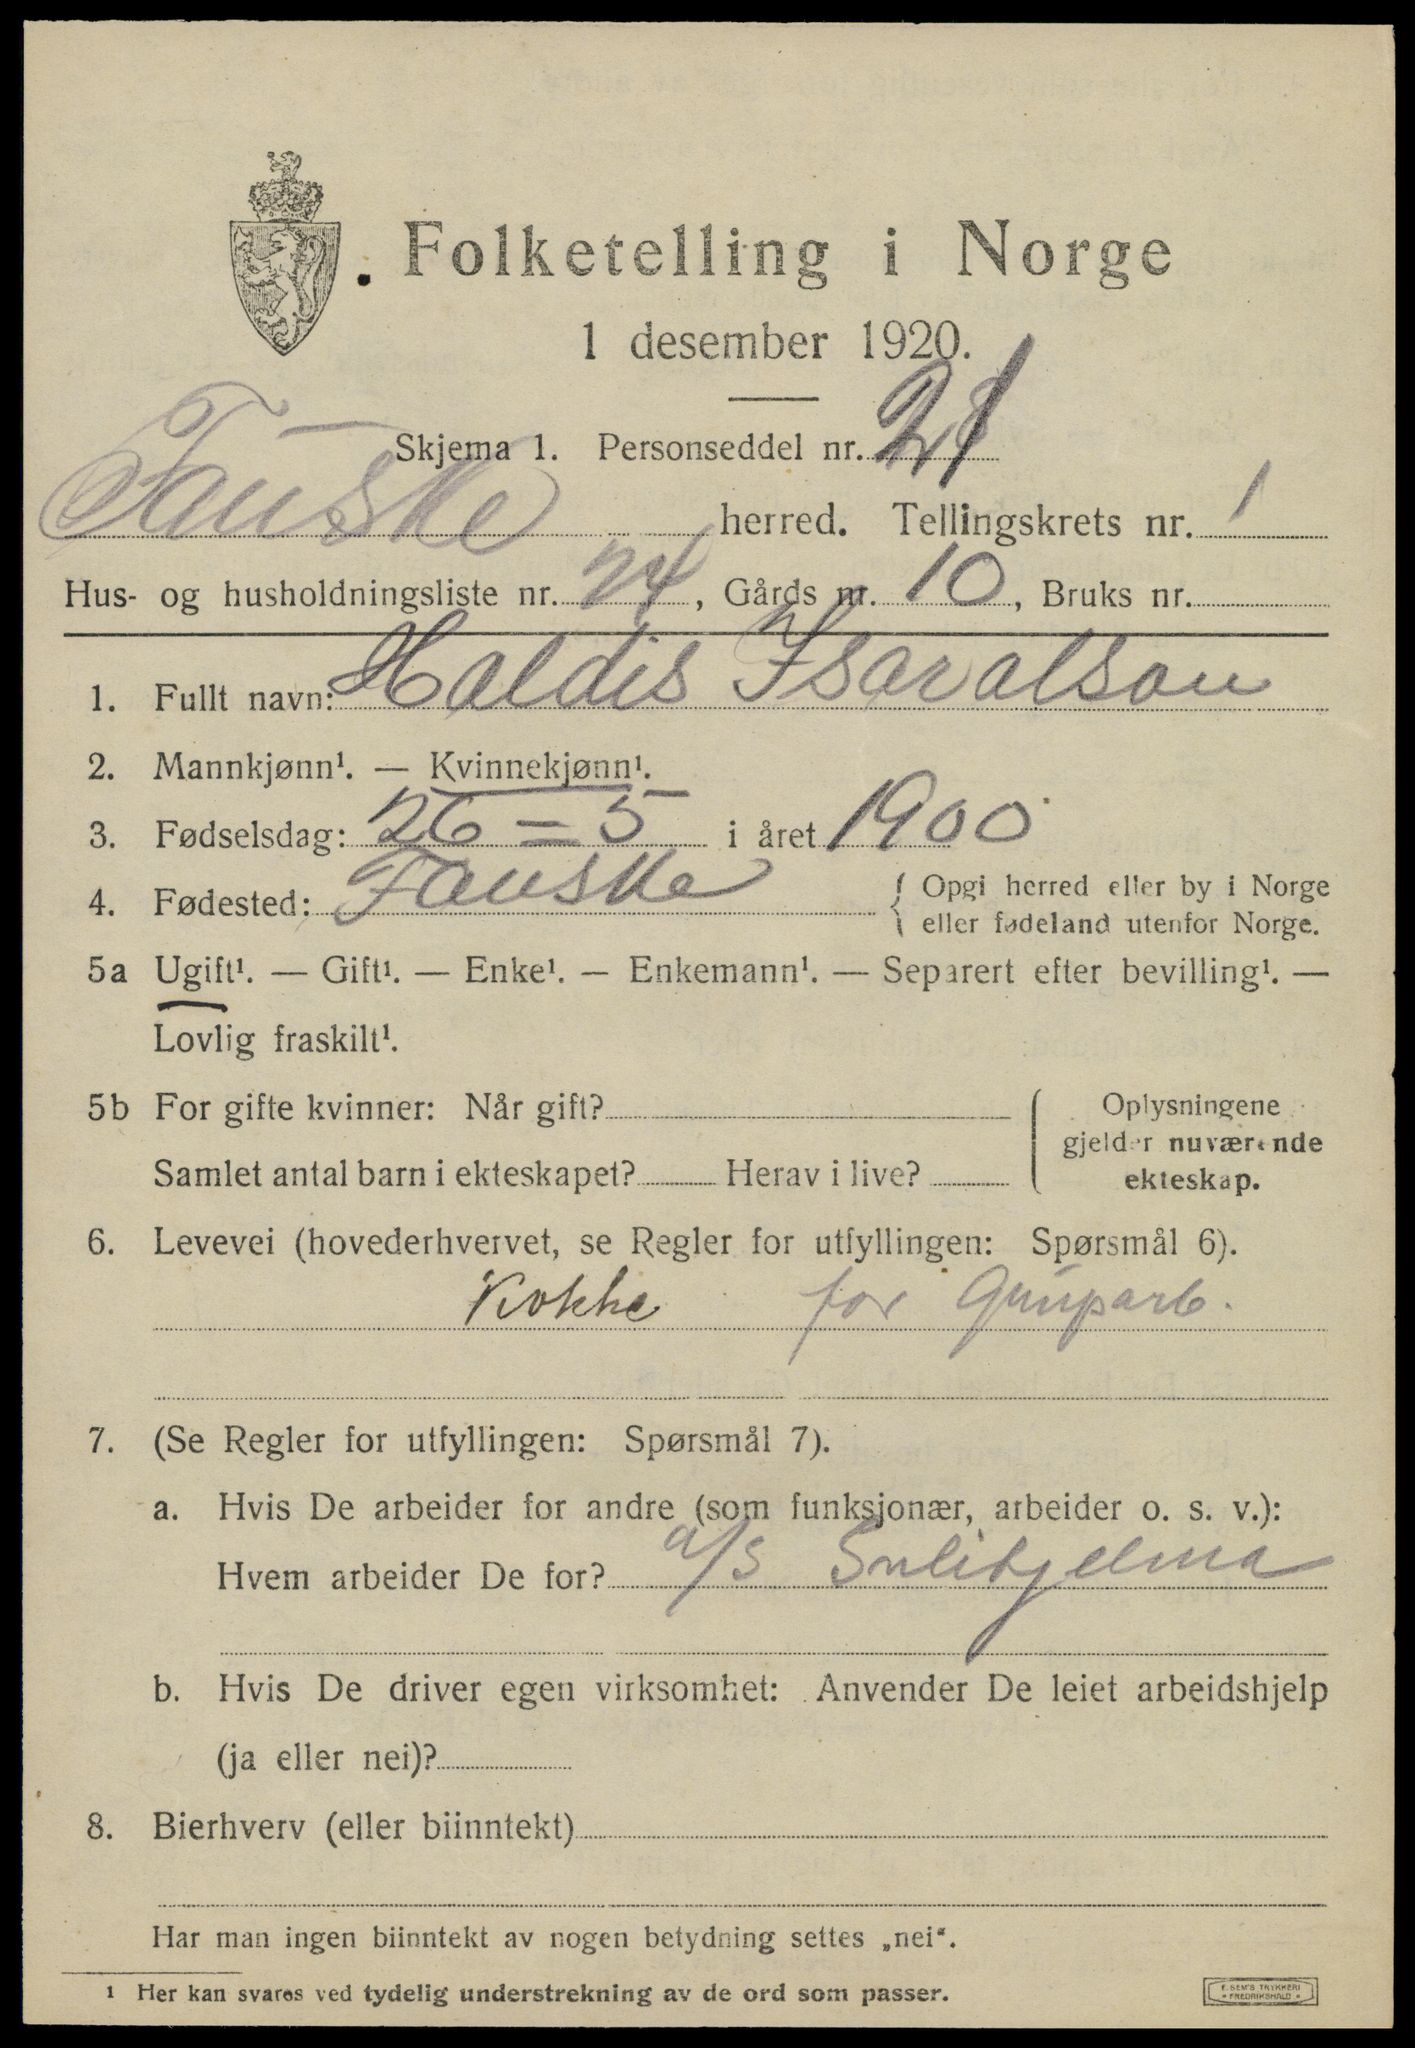 Folketelling i Norge
1 desember 1920.
Skjema 1. Personseddel nr.
Fauske herred. Tellingskrets nr. 1
Hus- og husholdningsliste nr. 24, Gårds nr. 10, Bruks nr.
1. Fullt navn: Haldis Isaralsan
2. Mannkjønn¹. — Kvinnekjønn¹.
3. Fødselsdag: 26 = 5 i året 1900
4. Fødested: Fauske { Opgi herred eller by i Norge
eller fødeland utenfor Norge.
5a Ugift¹. — Gift¹. — Enke¹. — Enkemann¹. — Separert efter bevilling¹. —
Lovlig fraskilt¹.
5b For gifte kvinner: Når gift?
Samlet antal barn i ekteskapet? Herav i live?
Oplysningene
gjelder nuværende
ekteskap.
6. Levevei (hovederhvervet, se Regler for utfyllingen: Spørsmål 6).
Kokke for Gruparb.
7. (Se Regler for utfyllingen: Spørsmål 7).
a. Hvis De arbeider for andre (som funksjonær, arbeider o. s. v.):
Hvem arbeider De for? a/s Sulitjelma
b. Hvis De driver egen virksomhet: Anvender De leiet arbeidshjelp
(ja eller nei)?
8. Bierhverv (eller biinntekt)
Har man ingen biinntekt av nogen betydning settes „nei“.
¹ Her kan svares ved tydelig understrekning av de ord som passer.
F. SEM'S TRYKKERI
FREDRIKSHALD